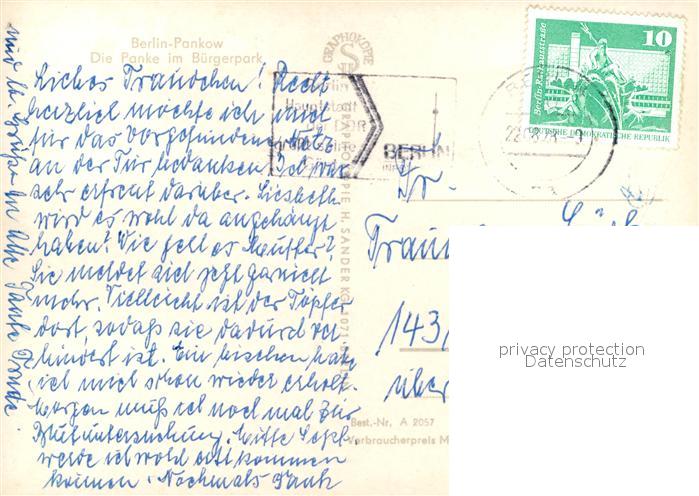 Berlin-Pankow
Die Panke im Bürgerpark
Liebes Traudchen! Recht
herzlich möchte ich mich
für das vorgefundene Netz
an der Tür bedanken. Ich war
sehr erfreut darüber. Liesbeth
wird es wohl da angehängt
haben? Wie geht es Mutter?
Sie meldet sich jetzt garnicht
mehr. Vielleicht ist der Töpfer
dort, sodaß sie dadurch ver-
hindert ist. Ein bischen hab
ich mich schon wieder erholt.
Morgen muß ich noch mal zur
Blutuntersuchung. Mitte Sept.
werde ich wohl erst kommen
können. Nochmals Dank
und h. Grüße Alte Tante
GRAPHOKOPIE
GRAPHOKOPIE H. SANDER KG, 1071 BERLIN
Hauptstadt
DDR
BERLIN
10
Berlin-Rathausstraße
DEUTSCHE DEMOKRATISCHE REPUBLIK
143/
über
Best.-Nr. A 2057
Verbraucherpreis M
privacy protection
Datenschutz